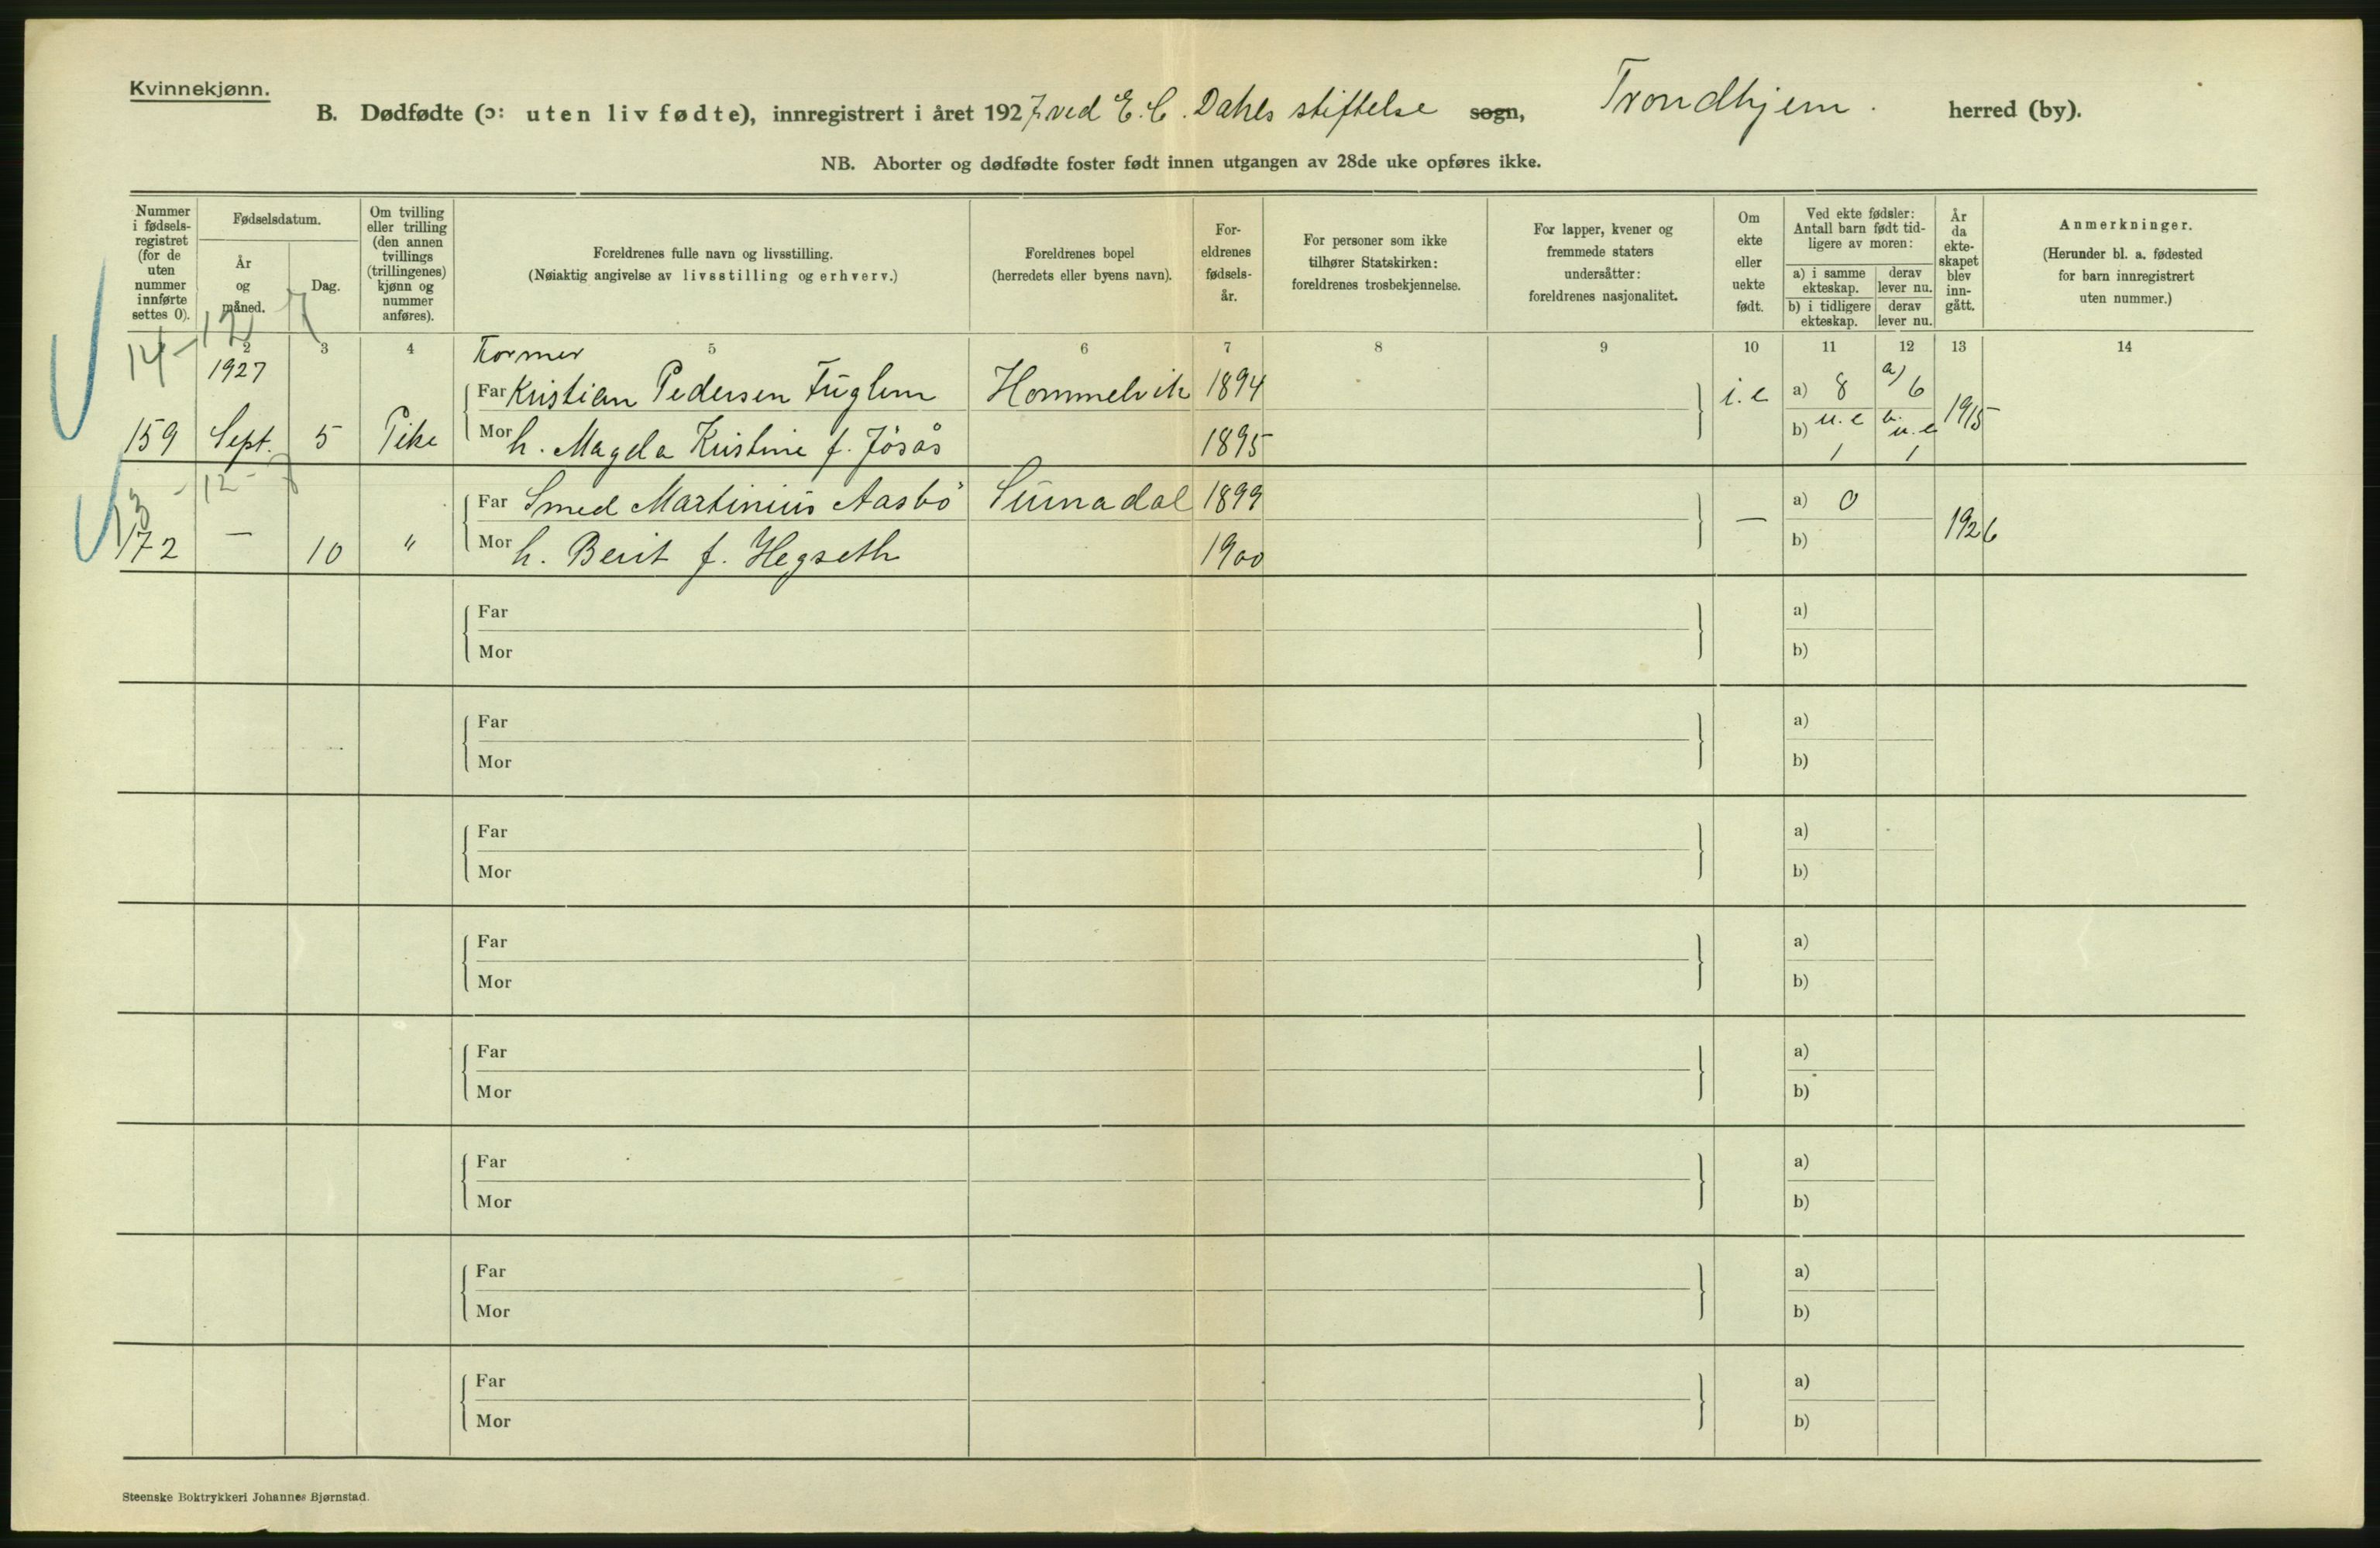 Kvinnekjønn.
B. Dødfødte (ɔ: uten liv fødte), innregistrert i året 1927 ved E. C. Dahls stiftelse sogn, Trondhjem. herred (by).
NB. Aborter og dødfødte foster født innen utgangen av 28de uke opføres ikke.
Nummer i fødsels-registret (for de uten nummer innførte settes 0).
Fødselsdatum.
År og måned.
Dag.
Om tvilling eller trilling (den annen tvillings (trillingenes) kjønn og nummer anføres).
Foreldrenes fulle navn og livsstilling.
(Nøiaktig angivelse av livsstilling og erhverv.)
Foreldrenes bopel
(herredets eller byens navn).
For-eldrenes fødsels-år.
For personer som ikke tilhører Statskirken: foreldrenes trosbekjennelse.
For lapper, kvener og fremmede staters undersåtter: foreldrenes nasjonalitet.
Om ekte eller uekte født.
Ved ekte fødsler: Antall barn født tid-ligere av moren:
a) i samme ekteskap.
derav lever nu.
b) i tidligere ekteskap.
derav lever nu.
År da ekte-skapet blev inn-gått.
Anmerkninger.
(Herunder bl. a. fødested for barn innregistrert uten nummer.)
14 - 12 7
2 3 4 5 6 7 8 9 10 11 12 13 14
1927
Former
Far Kristian Pedersen Fuglem Hommelvik 1894 i. e a) 8 a) 6 1915
159 Sept. 5 Pike Mor h. Magda Kristine f. Jøsås 1895 b) u. e 1 b. u. e 1
13 - 12 - 7
Far Smed Martinius Aasbö Surnadal 1899 — a) 0 1926
172 — 10 " Mor h. Berit f. Hegseth 1900 b)
Far a)
Mor b)
Far a)
Mor b)
Far a)
Mor b)
Far a)
Mor b)
Far a)
Mor b)
Far a)
Mor b)
Far a)
Mor b)
Far a)
Mor b)
Steenske Boktrykkeri Johannes Bjørnstad.